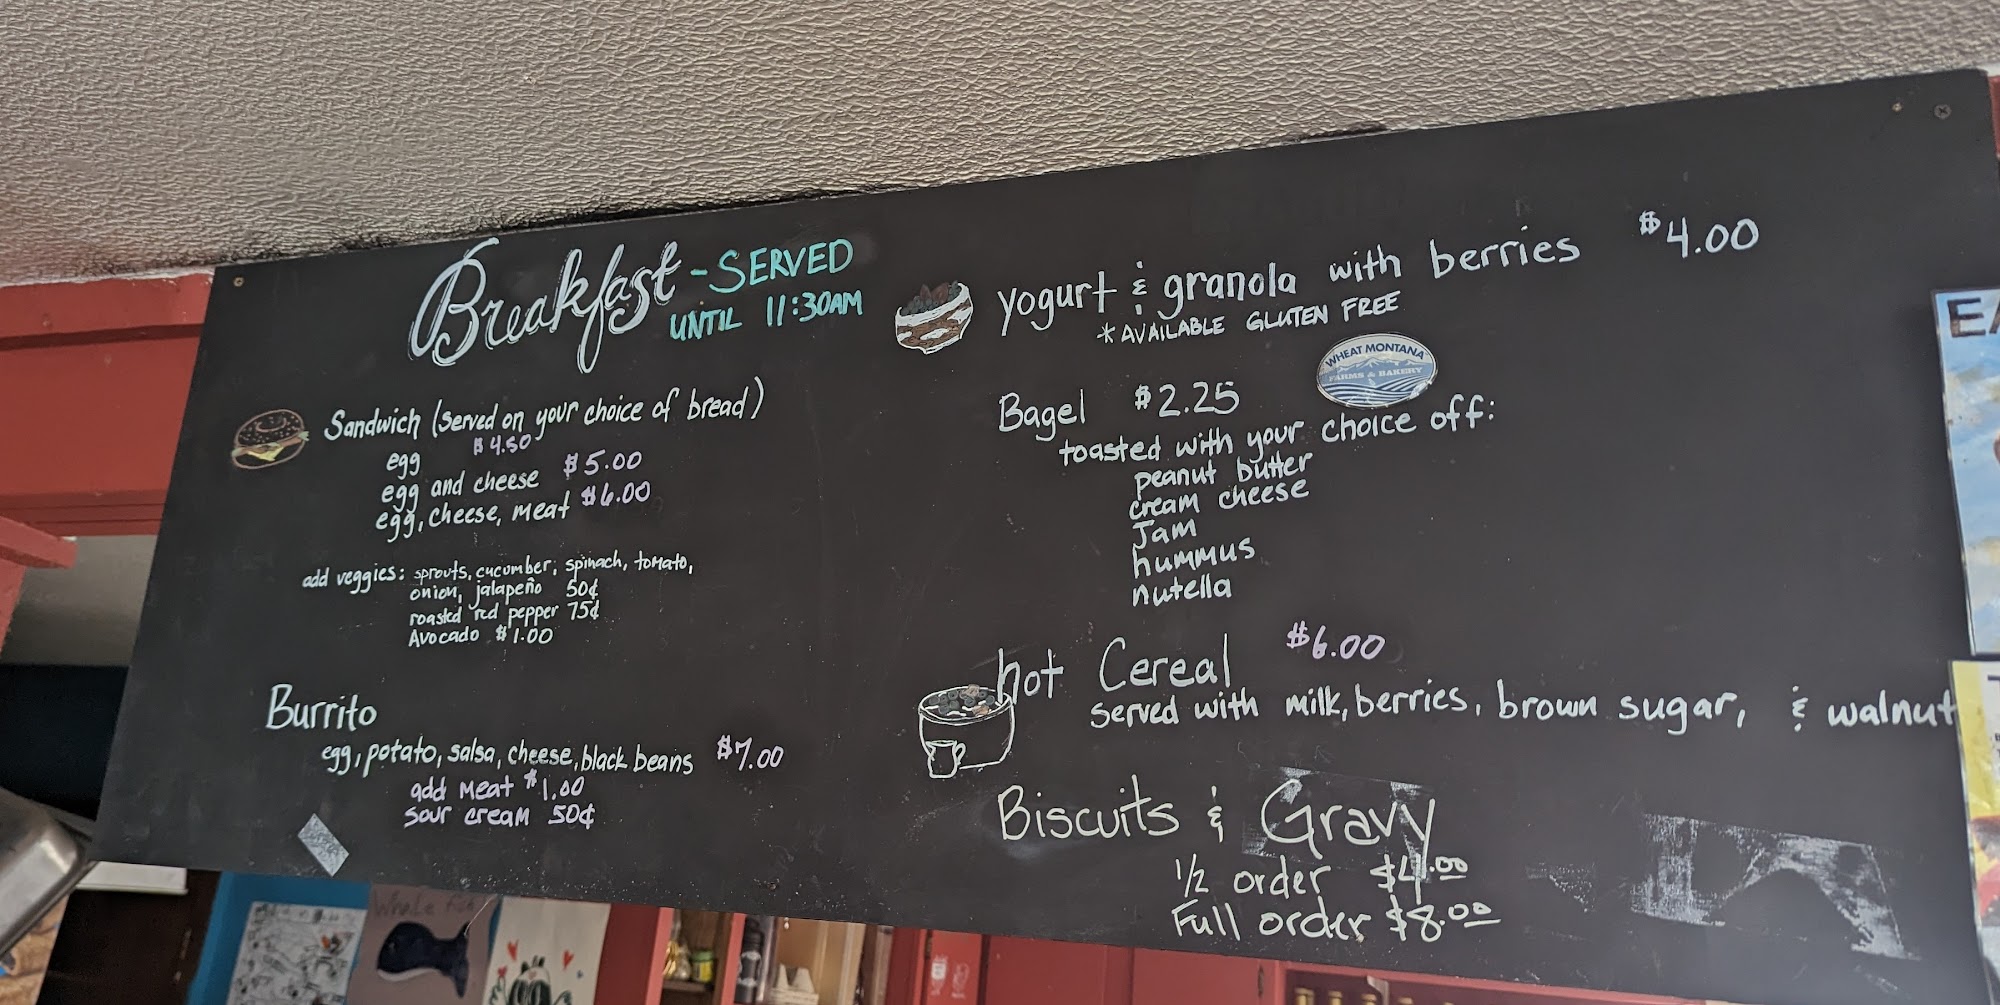 Breakfast - SERVED
UNTIL 11:30AM
Sandwich (served on your choice of bread)
egg $4.50
egg and cheese $5.00
egg, cheese, meat $6.00
add veggies: sprouts, cucumber, spinach, tomato,
onion, jalapeño 50¢
roasted red pepper 75¢
Avocado $1.00
Burrito
egg, potato, salsa, cheese, black beans $7.00
add meat $1.00
sour cream 50¢
yogurt & granola with berries $4.00
*AVAILABLE GLUTEN FREE
WHEAT MONTANA
FARMS & BAKERY
Bagel $2.25
toasted with your choice off:
peanut butter
cream cheese
Jam
hummus
nutella
hot Cereal $6.00
Served with milk, berries, brown sugar, & walnut
Biscuits & Gravy
1/2 order $4.00
Full order $8.00
EA
Whale